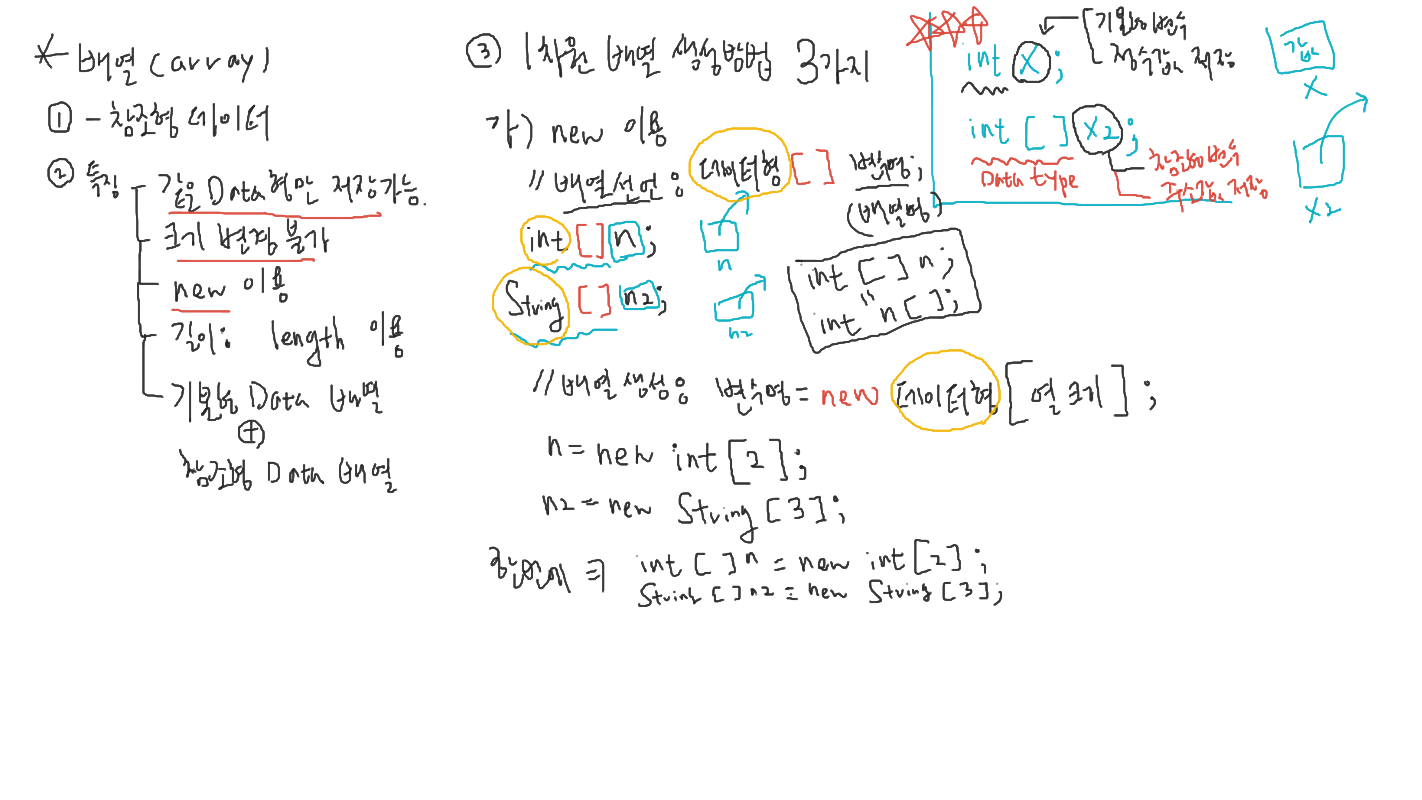 * 배열(array)
① - 참조형 데이터
② 특징
같은 Data형만 저장가능.
크기 변경 불가
new 이용
길이: length 이용
기본형 Data 배열
+
참조형 Data 배열
③ 1차원 배열 생성방법 3가지
가) new 이용
// 배열선언: 데이터형[] 변수명;
(배열명)
int[]n;
n
String[]n2;
n2
int[]n;
"
int n[];
// 배열생성: 변수명 = new 데이터형[열크기];
n = new int[2];
n2 = new String[3];
한번에 ⇒ int[]n = new int[2];
String[]n2 = new String[3];
int X;
기본형변수
정수값 저장
값
X
int[] X2;
Data type
참조형변수
주소값 저장
X2